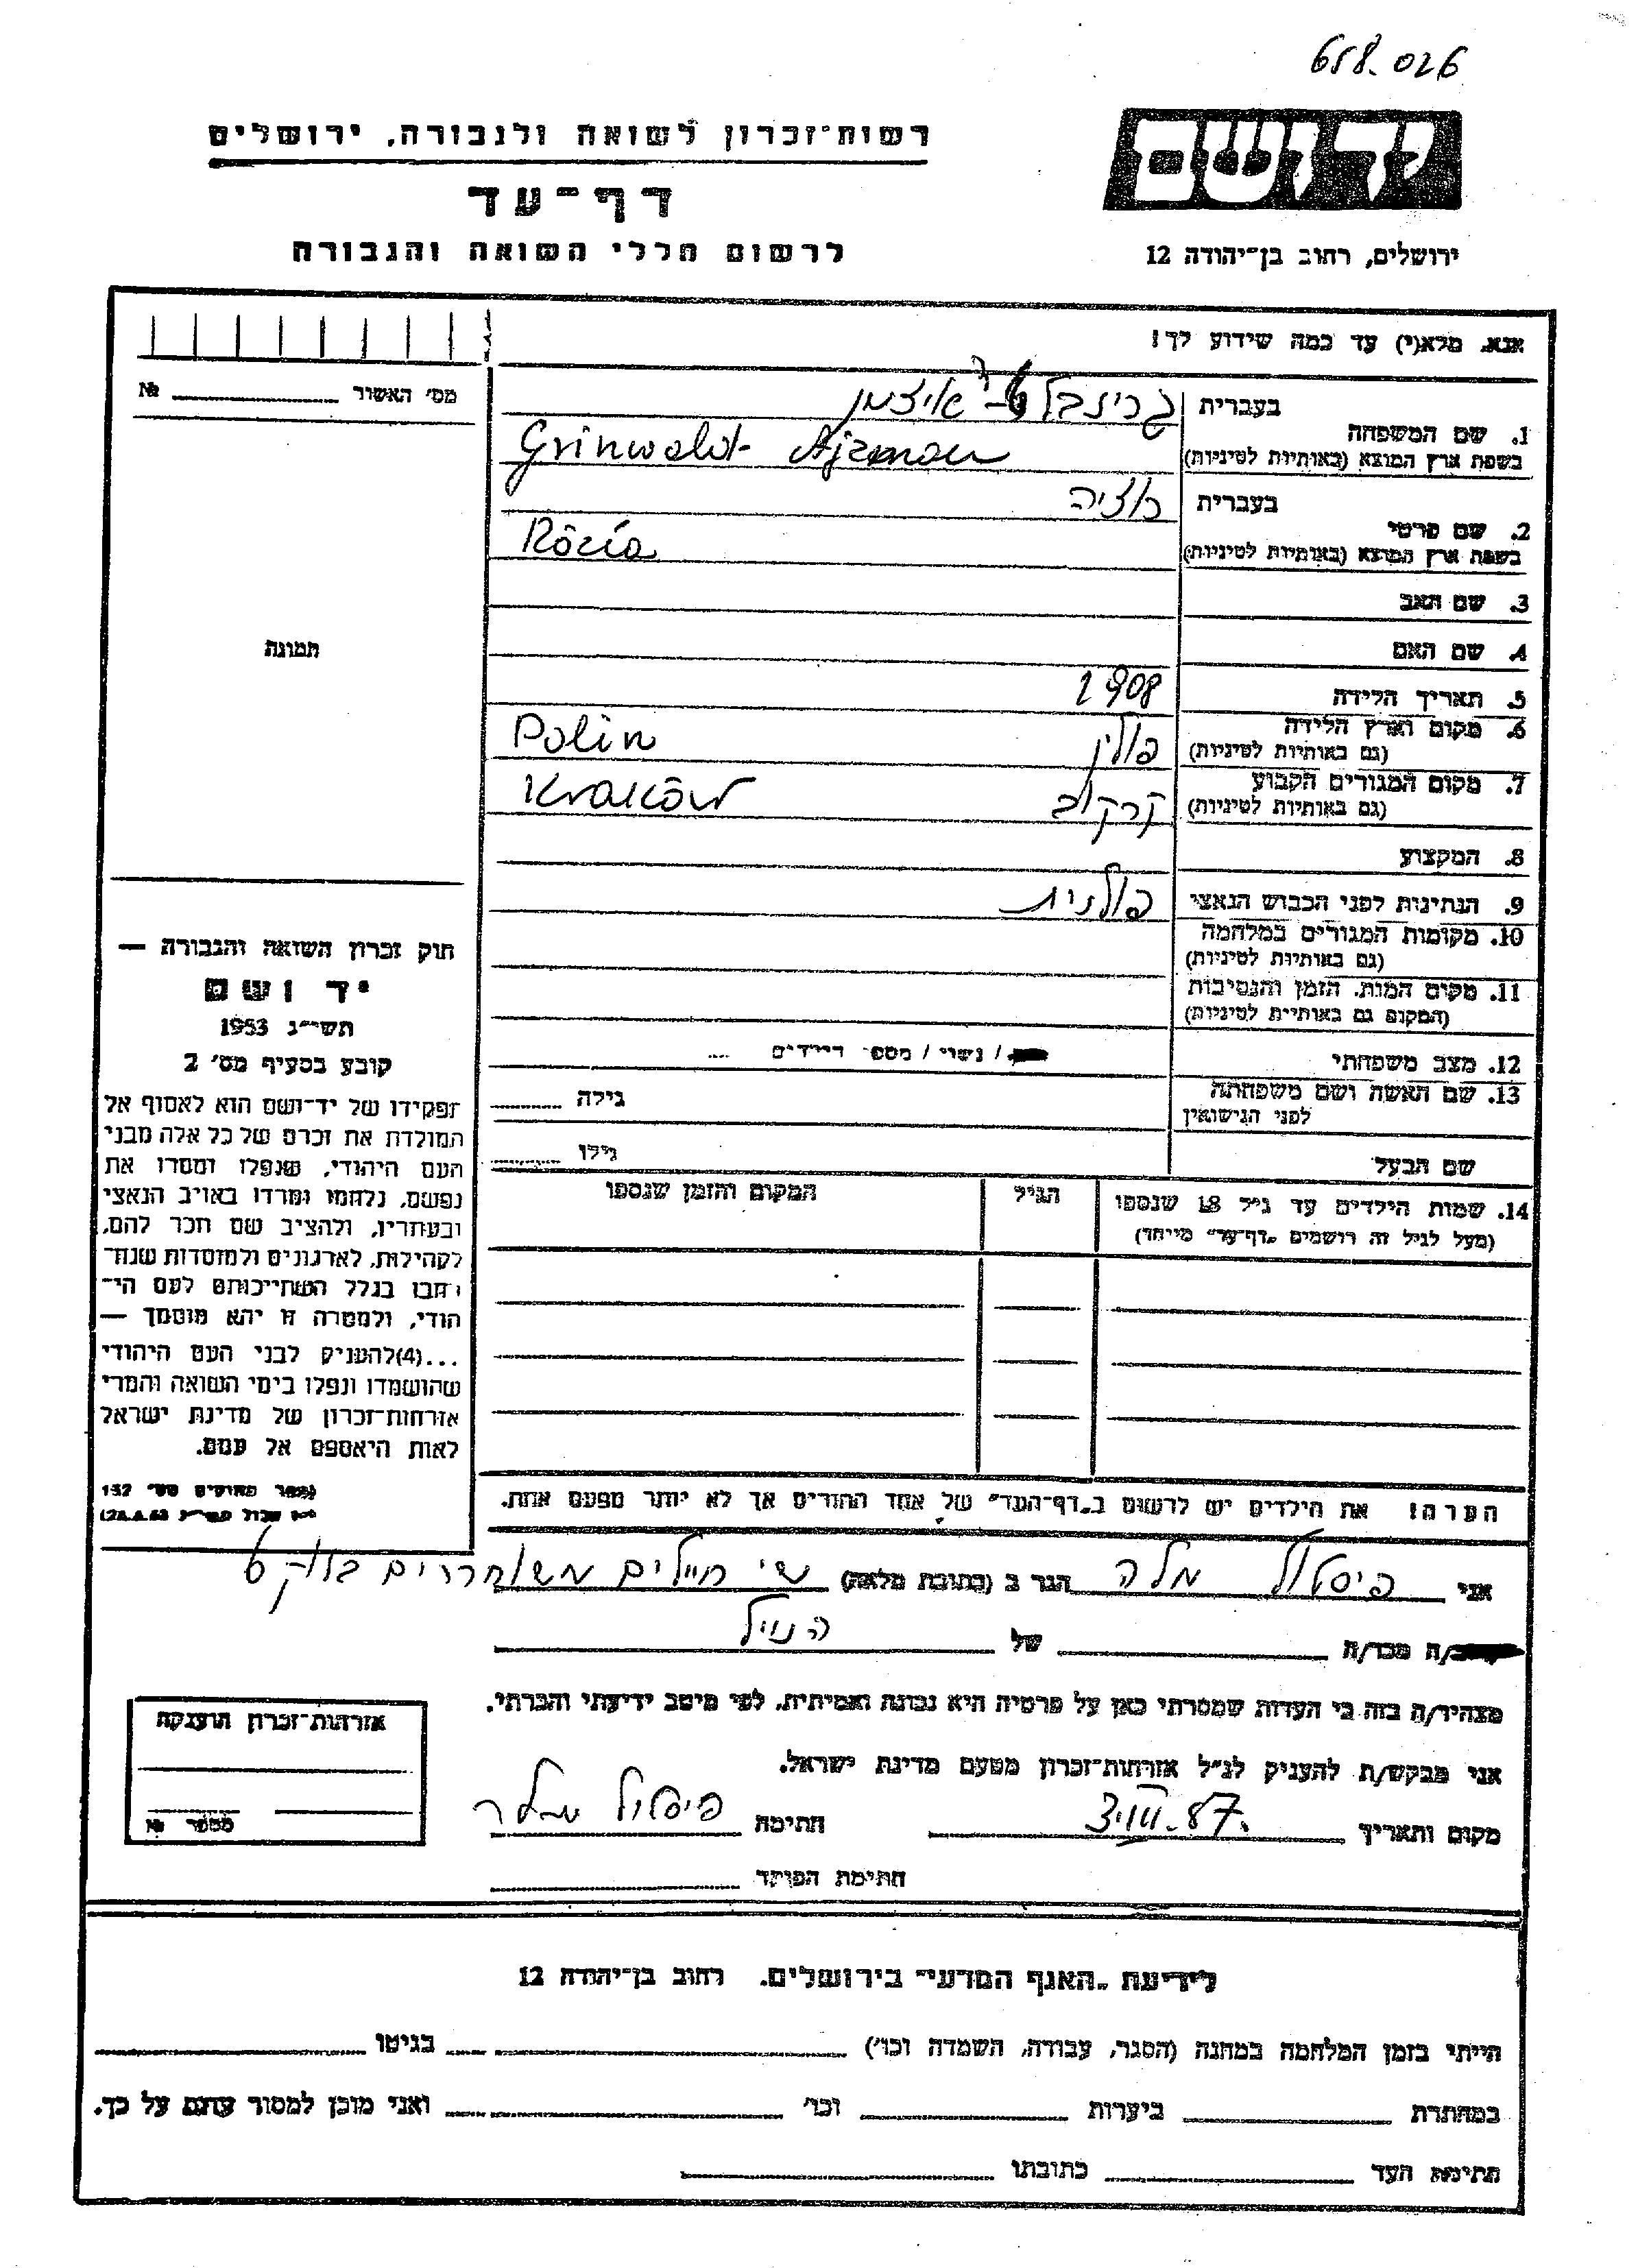 658.026
רשות־זכרון לשואה ולגבורה, ירושלים
דף־עד
לרשום חללי השואה והגבורה
יד ושם
ירושלים, רחוב בן־יהודה 12
אנא, מלא(י) עד כמה שידוע לך!
מס' האשור № 
1. שם המשפחה בעברית
Grinwald- Ajzman
בשפת ארץ המוצא (באותיות לטיניות)
2. שם פרטי בעברית רוזיה
Rózia
בשפת ארץ המוצא (באותיות לטיניות)
3. שם האב
4. שם האם
5. תאריך הלידה 1908
6. מקום וארץ הלידה פולין Polin
(גם באותיות לטיניות)
7. מקום המגורים הקבוע קרקוב Kraków
(גם באותיות לטיניות)
8. המקצוע
9. הנתינות לפני הכבוש הנאצי פולנית
10. מקומות המגורים במלחמה
(גם באותיות לטיניות)
11. מקום המות, הזמן והנסיבות
(המקום גם באותיות לטיניות)
12. מצב משפחתי / נשוי / מספר הילדים
13. שם האשה ושם משפחתה גילה
לפני הנישואין
שם הבעל גילו
14. שמות הילדים עד גיל 18 שנספו הגיל המקום והזמן שנספו
(מעל לגיל זה רושמים „דף־עד” מיוחד)
הערה! את הילדים יש לרשום ב„דף־העד” של אחד ההורים אך לא יותר מפעם אחת.
תמונה
חוק זכרון השואה והגבורה —
יד ושם
תשי״ג 1953
קובע בסעיף מס' 2
תפקידו של יד־ושם הוא לאסוף אל
המולדת את זכרם של כל אלה מבני
העם היהודי, שנפלו ומסרו את
נפשם, נלחמו ומרדו באויב הנאצי
ובעוזריו, ולהציב שם וזכר להם,
לקהילות, לארגונים ולמוסדות שנח־
רבו בגלל השתייכותם לעם הי־
הודי, ולמטרה זו יהא מוסמך —
...(4) להעניק לבני העם היהודי
שהושמדו ונפלו בימי השואה והמרי
אזרחות־זכרון של מדינת ישראל
לאות היאספם אל עמם.
(ספר החוקים מס' 132
אני פיסטול מלה הגר ב (כתובת מלאה) שי חיילים משוחררים בלוק 6
ה מכר/ה של הנ״ל
מצהיר/ה בזה כי העדות שמסרתי כאן על פרטיה היא נכונה ואמיתית, לפי מיטב ידיעתי והכרתי.
אני מבקש/ת להעניק לנ״ל אזרחות־זכרון מטעם מדינת ישראל.
מקום ותאריך 3.VIII.87. חתימה פיסטול מלה
חתימת הפוקד
אזרחות־זכרון הוענקה
מספר №
לידיעת „האגף המדעי” בירושלים, רחוב בן־יהודה 12
הייתי בזמן המלחמה במחנה (הסגר, עבודה, השמדה וכו') בגיטו
במחתרת ביערות וכו' ואני מוכן למסור עדות על כך.
חתימת העד כתובתו